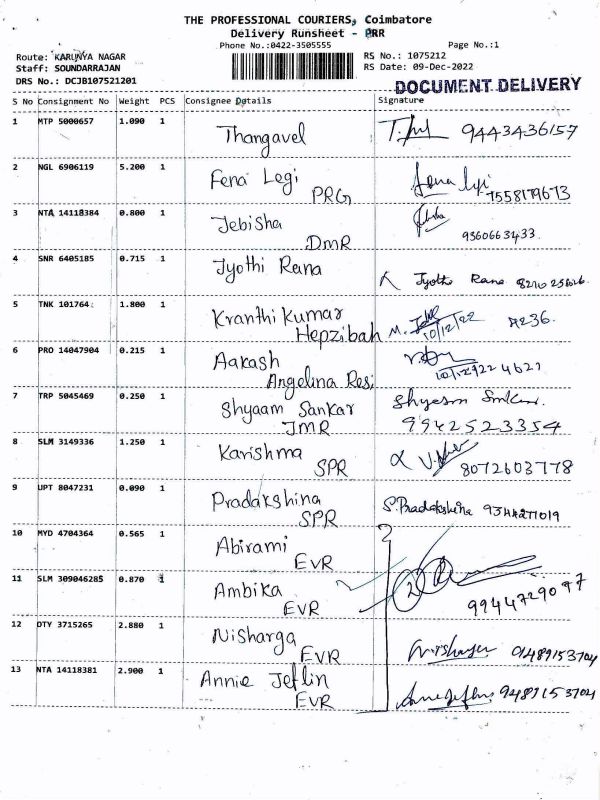 THE PROFESSIONAL COURIERS, Coimbatore
Delivery Runsheet - PRR
Phone No.:0422-3505555
Page No.:1
Route: KARUNYA NAGAR
Staff: SOUNDARRAJAN
DRS No.: DCJB107521201
RS No.: 1075212
RS Date: 09-Dec-2022
DOCUMENT DELIVERY
S No Consignment No Weight PCS Consignee Details Signature
1 MTP 5000657 1.090 1 Thangavel 9443436157
2 NGL 6906119 5.200 1 Fena Legi
PRG 7558179673
3 NTA 14118384 0.800 1 Jebisha
DMR 9360663433
4 SNR 6405185 0.715 1 Jyothi Rana Jyothi Rana
5 TNK 101764 1.800 1 Kranthi Kumar
Hepzibah 10/12/22 A236.
6 PRO 14047904 0.215 1 Aakash
Angelina Resi 10/12/22 4621
7 TRP 5045469 0.250 1 Shyaam Sankar
JMR 9942523354
8 SLM 3149336 1.250 1 Karishma
SPR 8072603778
9 UPT 8047231 0.090 1 Pradakshina
SPR S.Pradakshina 9344277019
10 MYD 4704364 0.565 1 Abirami
EVR
11 SLM 309046285 0.870 1 Ambika
EVR 2 9944729097
12 DTY 3715265 2.880 1 Nisharga
EVR 9489153704
13 NTA 14118381 2.900 1 Annie Jeflin
EVR 9489153704